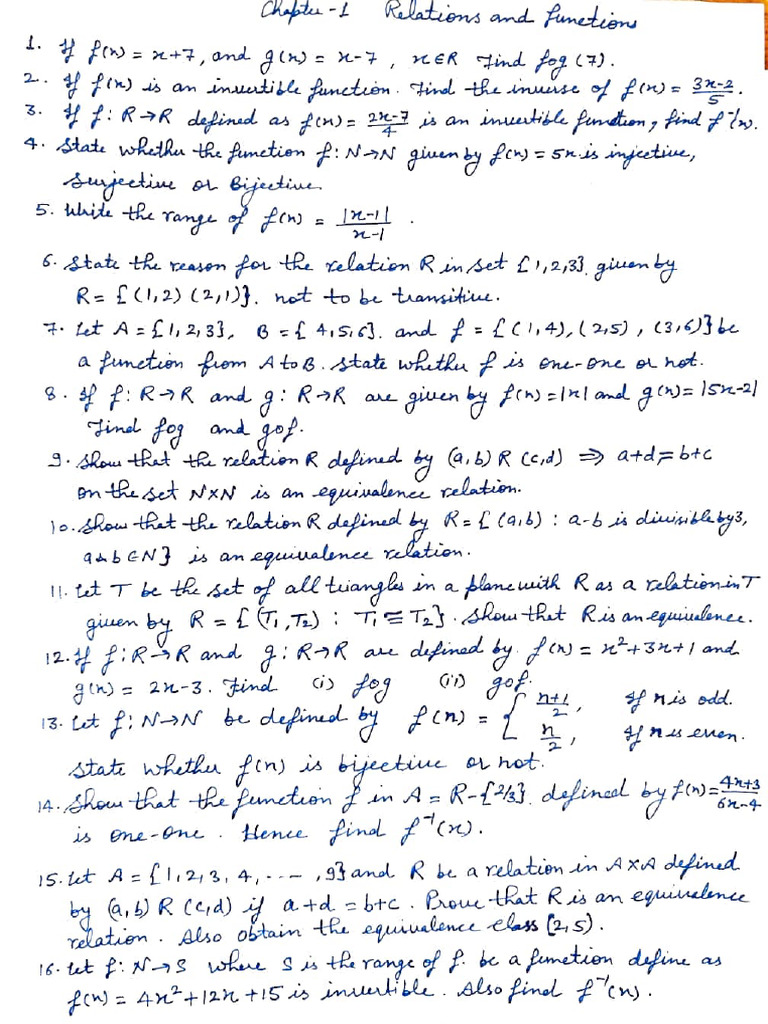 Chapter-1 Relations and functions
1. If f(x) = x+7, and g(x) = x-7, x∈R Find fog (7).
2. If f(x) is an invertible function. Find the inverse of f(x) = 3x-2/5.
3. If f: R→R defined as f(x) = 2x-7/4 is an invertible function, find f⁻¹(x).
4. State whether the function f: N→N given by f(x) = 5x is injective,
Surjective or Bijective.
5. Write the range of f(x) = |x-1|/x-1 .
6. State the reason for the relation R in set {1,2,3} given by
R = {(1,2) (2,1)}. not to be transitive.
7. Let A = {1,2,3}, B = {4,5,6}. and f = {(1,4), (2,5), (3,6)} be
a function from A to B. State whether f is one-one or not.
8. If f: R→R and g: R→R are given by f(x) = |x| and g(x) = |5x-2|
Find fog and gof.
9. Show that the relation R defined by (a,b) R (c,d) ⇒ a+d = b+c
on the set N×N is an equivalence relation.
10. Show that the relation R defined by R = {(a,b) : a-b is divisible by 3,
a & b ∈ N} is an equivalence relation.
11. Let T be the set of all triangles in a plane with R as a relation in T
given by R = {(T₁, T₂) : T₁ ≅ T₂}. Show that R is an equivalence.
12. If f: R→R and g: R→R are defined by f(x) = x²+3x+1 and
g(x) = 2x-3. Find (i) fog (ii) gof.
13. Let f: N→N be defined by f(n) = { n+1/2, If n is odd.
n/2, If n is even.
State whether f(n) is bijective or not.
14. Show that the function f in A = R-{2/3} defined by f(x) = 4x+3/6x-4
is one-one. Hence find f⁻¹(x).
15. Let A = {1,2,3,4,---,9} and R be a relation in A×A defined
by (a,b) R (c,d) if a+d = b+c. Prove that R is an equivalence
relation. Also obtain the equivalence class [2,5).
16. Let f: N→S where S is the range of f. be a function define as
f(x) = 4x²+12x+15 is invertible. Also find f⁻¹(x).